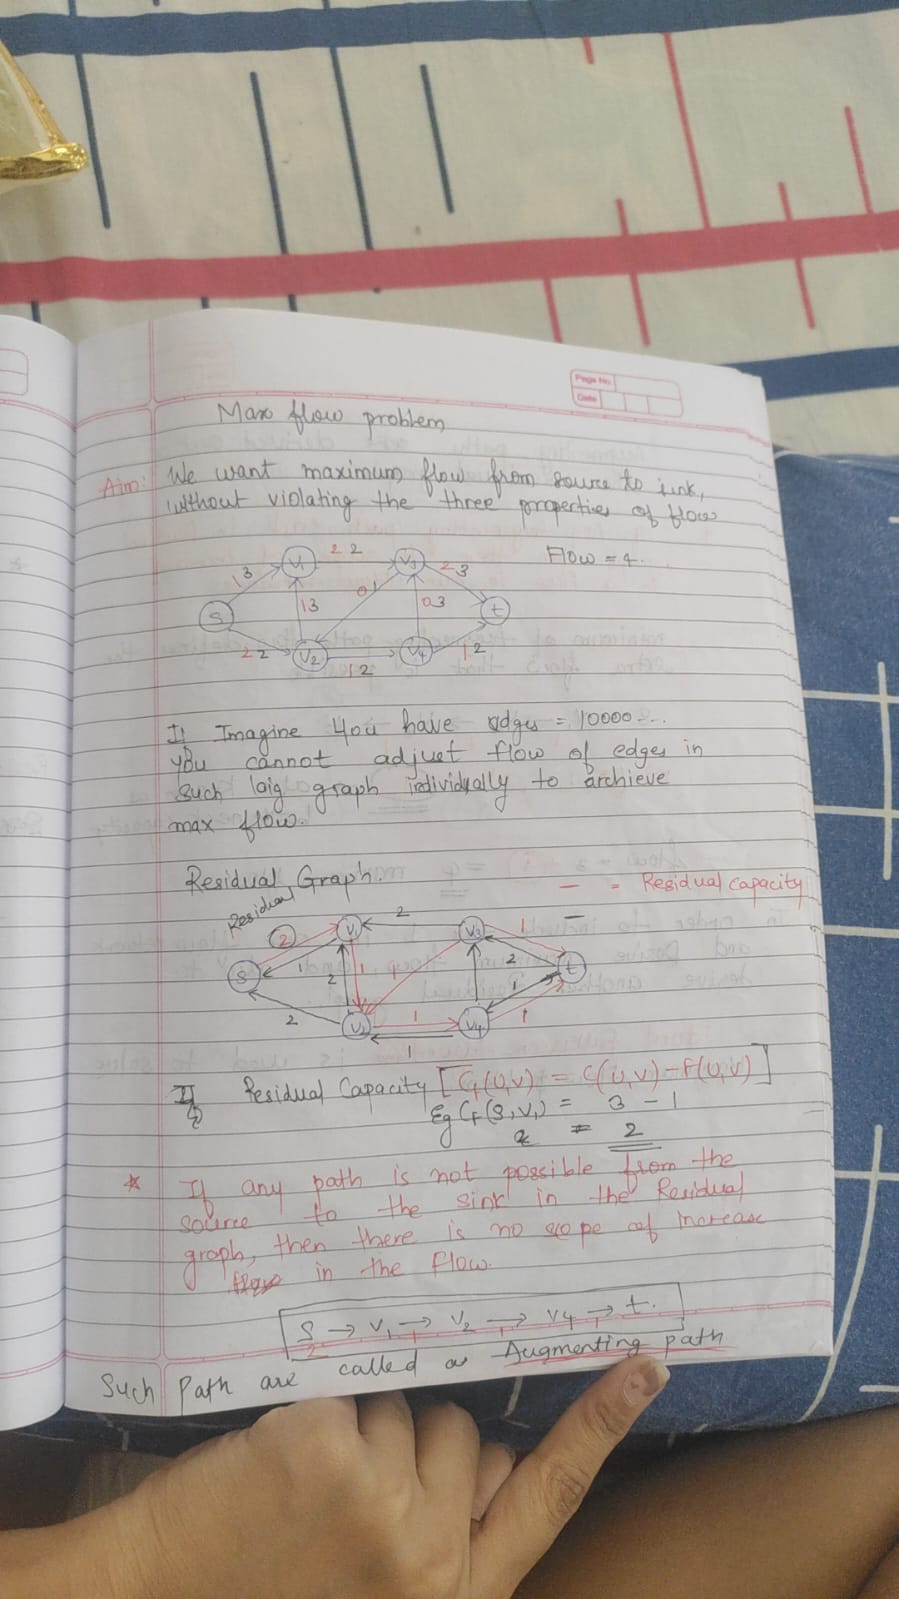 Page No.
Date
Max flow problem
Aim: We want maximum flow from source to sink,
without violating the three properties of flow
Flow = 4.
S V1 V3 t V2 V4
1 3
2 2
2 3
1 3
0 1
0 3
2 2
1 2
1 2
If Imagine you have edges = 10000...
you cannot adjust flow of edges in
such larg graph individually to archieve
max flow.
Residual Graph.
— = Residual Capacity
Residual
S V1 V3 t V2 V4
2
2
1
1
2
1
1
2
1
2
1
1
1
Residual Capacity [Cf(U,V) = C(U,V) - F(U,V)]
Eg Cf(S,V1) = 3 - 1
= 2
* If any path is not possible from the
source to the sink in the Residual
graph, then there is no scope of increase
in the flow.
S → V1 → V2 → V4 → t.
2 1 1 1
Such Path are called as Augmenting path